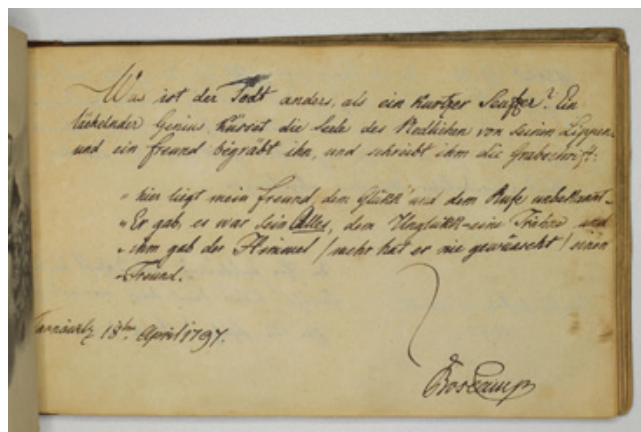 Was ist der Todt anders, als ein kurtzer Seufzer? Ein
lächelnder Genius küsset die Seele des Redlichen von seinen Lippen
und ein freund begräbt ihn, und schreibt ihm die Grabschrift:
„ hier liegt mein freund, dem Glükk und dem Rufe unbekannt.
„ Er gab, es war sein Alles, dem Unglükk eine Träne und
„ ihm gab der Himmel / mehr hat er nie gewünscht / einen
„ Freund.
18ten April 1797.
Boscamp